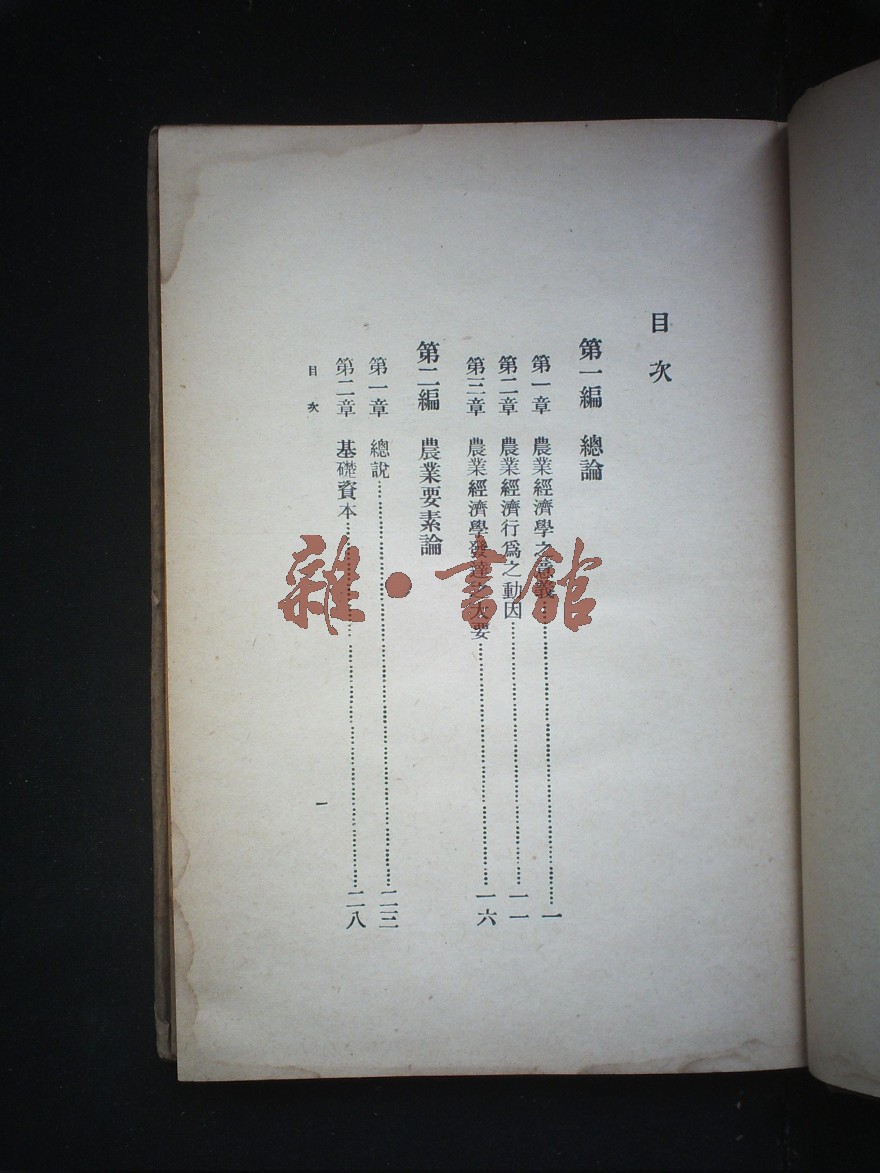 目次
第一編 總論
第一章 農業經濟學之意義……一
第二章 農業經濟行爲之動因……一一
第三章 農業經濟學發達之大要……一六
第二編 農業要素論
第一章 總說……二三
第二章 基礎資本……二八
目次
一
雜·書館